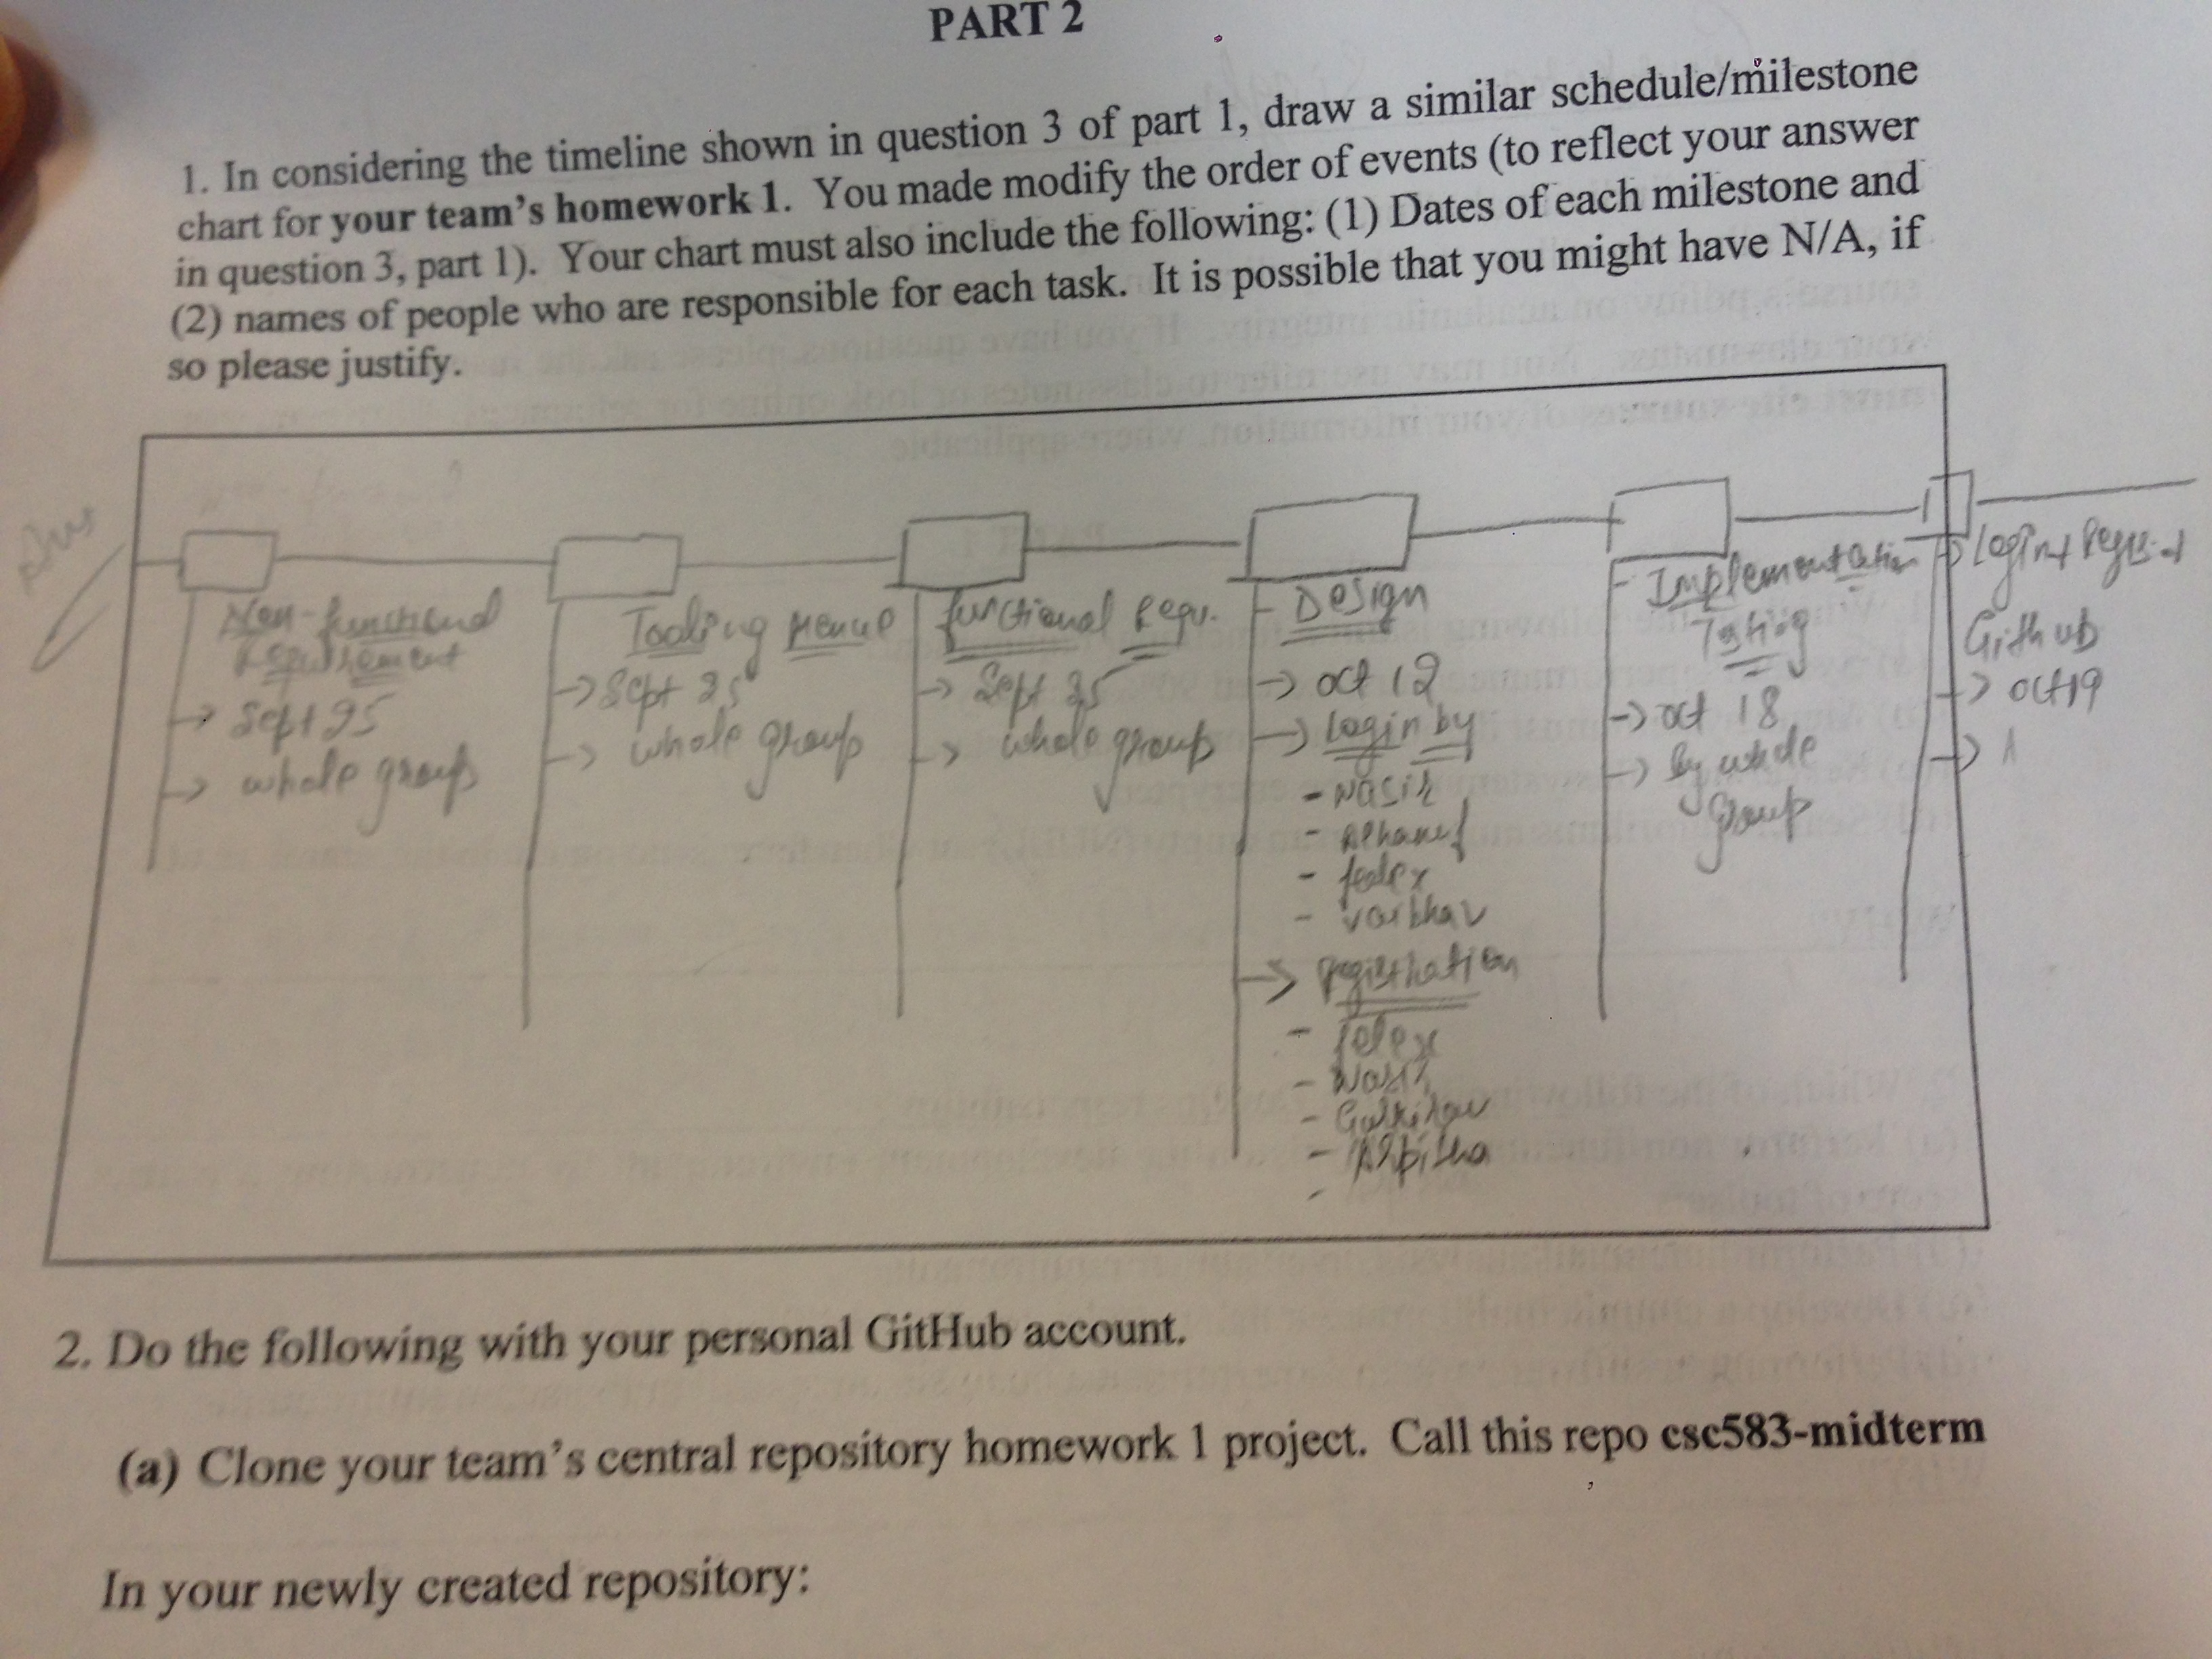 PART 2
1. In considering the timeline shown in question 3 of part 1, draw a similar schedule/milestone
chart for your team's homework 1. You made modify the order of events (to reflect your answer
in question 3, part 1). Your chart must also include the following: (1) Dates of each milestone and
(2) names of people who are responsible for each task. It is possible that you might have N/A, if
so please justify.
Ans
Non-functional
Requirement
→ Sept 25
→ whole group
Tooling
→ Sept 25
→ whole group
functional Requ.
→ Sept 25
→ whole group
- Design
→ oct 12
→ login by
- Nasir
-
- felex
- vaibhav
→ Registration
- felex
- Nasir
-
- Arpitha
-
- Implementation
Testing
→ oct 18
→ by whole
group
→ Login +
Github
→ oct 19
→
2. Do the following with your personal GitHub account.
(a) Clone your team's central repository homework 1 project. Call this repo csc583-midterm
In your newly created repository: